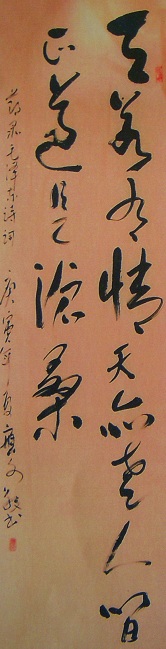 天若有情天亦老人间
正道是滄桑
节录毛泽东诗词 庚寅年夏 文 书